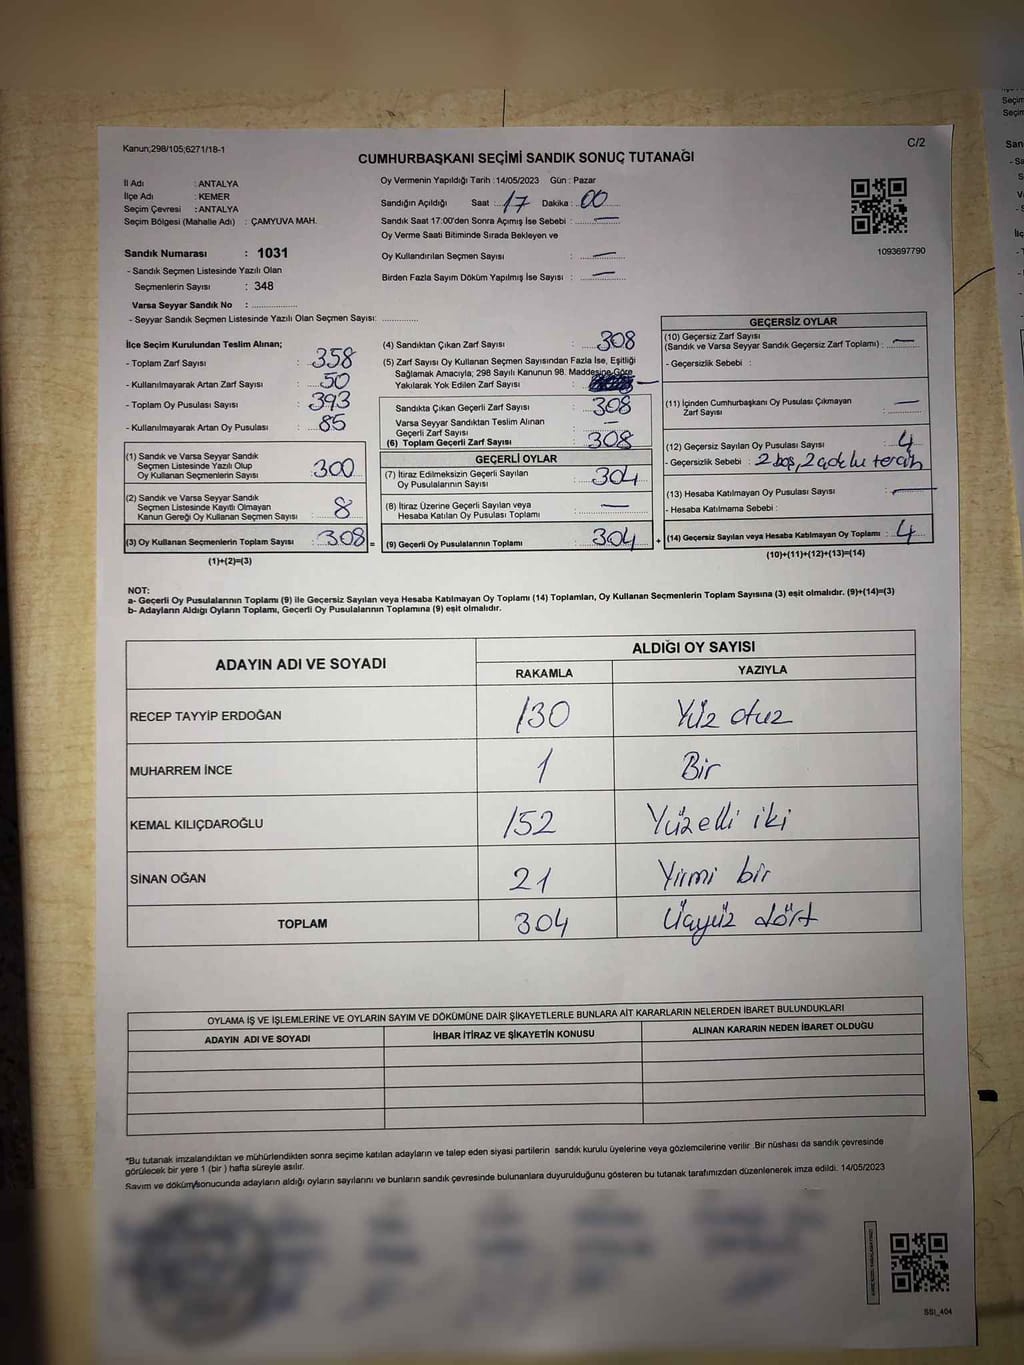 Kanun;298/105;6271/18-1
C/2
CUMHURBAŞKANI SEÇİMİ SANDIK SONUÇ TUTANAĞI
İl Adı : ANTALYA
İlçe Adı : KEMER
Seçim Çevresi : ANTALYA
Seçim Bölgesi (Mahalle Adı) : ÇAMYUVA MAH.
Oy Vermenin Yapıldığı Tarih : 14/05/2023 Gün : Pazar
Sandığın Açıldığı Saat : 17 Dakika : 00
Sandık Saat 17:00'den Sonra Açımış İse Sebebi : —
Oy Verme Saati Bitiminde Sırada Bekleyen ve
Oy Kullandırılan Seçmen Sayısı : —
Birden Fazla Sayım Döküm Yapılmış İse Sayısı : —
1093697790
Sandık Numarası : 1031
- Sandık Seçmen Listesinde Yazılı Olan
Seçmenlerin Sayısı : 348
Varsa Seyyar Sandık No : ..................
- Seyyar Sandık Seçmen Listesinde Yazılı Olan Seçmen Sayısı: ..............
İlçe Seçim Kurulundan Teslim Alınan;
- Toplam Zarf Sayısı : 358
- Kullanılmayarak Artan Zarf Sayısı : 50
- Toplam Oy Pusulası Sayısı : 393
- Kullanılmayarak Artan Oy Pusulası : 85
(1) Sandık ve Varsa Seyyar Sandık
Seçmen Listesinde Yazılı Olup
Oy Kullanan Seçmenlerin Sayısı : 300
(2) Sandık ve Varsa Seyyar Sandık
Seçmen Listesinde Kayıtlı Olmayan
Kanun Gereği Oy Kullanan Seçmen Sayısı : 8
(3) Oy Kullanan Seçmenlerin Toplam Sayısı : 308 =
(1)+(2)=(3)
(4) Sandıktan Çıkan Zarf Sayısı : 308
(5) Zarf Sayısı Oy Kullanan Seçmen Sayısından Fazla İse, Eşitliği
Sağlamak Amacıyla; 298 Sayılı Kanunun 98. Maddesine Göre
Yakılarak Yok Edilen Zarf Sayısı : —
Sandıkta Çıkan Geçerli Zarf Sayısı : 308
Varsa Seyyar Sandıktan Teslim Alınan
Geçerli Zarf Sayısı : —
(6) Toplam Geçerli Zarf Sayısı : 308
GEÇERLİ OYLAR
(7) İtiraz Edilmeksizin Geçerli Sayılan
Oy Pusulalarının Sayısı : 304
(8) İtiraz Üzerine Geçerli Sayılan veya
Hesaba Katılan Oy Pusulası Toplamı : —
(9) Geçerli Oy Pusulalarının Toplamı : 304 +
GEÇERSİZ OYLAR
(10) Geçersiz Zarf Sayısı
(Sandık ve Varsa Seyyar Sandık Geçersiz Zarf Toplamı) : —
- Geçersizlik Sebebi :
(11) İçinden Cumhurbaşkanı Oy Pusulası Çıkmayan
Zarf Sayısı : —
(12) Geçersiz Sayılan Oy Pusulası Sayısı : 4
- Geçersizlik Sebebi : 2 boş, 2 çoklu tercih
(13) Hesaba Katılmayan Oy Pusulası Sayısı : —
- Hesaba Katılmama Sebebi :
(14) Geçersiz Sayılan veya Hesaba Katılmayan Oy Toplamı : 4
(10)+(11)+(12)+(13)=(14)
NOT:
a- Geçerli Oy Pusulalarının Toplamı (9) ile Geçersiz Sayılan veya Hesaba Katılmayan Oy Toplamı (14) Toplamları, Oy Kullanan Seçmenlerin Toplam Sayısına (3) eşit olmalıdır. (9)+(14)=(3)
b- Adayların Aldığı Oyların Toplamı, Geçerli Oy Pusulalarının Toplamına (9) eşit olmalıdır.
ADAYIN ADI VE SOYADI
ALDIĞI OY SAYISI
RAKAMLA YAZIYLA
RECEP TAYYİP ERDOĞAN 130 Yüz otuz
MUHARREM İNCE 1 Bir
KEMAL KILIÇDAROĞLU 152 Yüzelli iki
SİNAN OĞAN 21 Yirmi bir
TOPLAM 304 Üçyüz dört
OYLAMA İŞ VE İŞLEMLERİNE VE OYLARIN SAYIM VE DÖKÜMÜNE DAİR ŞİKAYETLERLE BUNLARA AİT KARARLARIN NELERDEN İBARET BULUNDUKLARI
ADAYIN ADI VE SOYADI İHBAR İTİRAZ VE ŞİKAYETİN KONUSU ALINAN KARARIN NEDEN İBARET OLDUĞU
*Bu tutanak imzalandıktan ve mühürlendikten sonra seçime katılan adayların ve talep eden siyasi partilerin sandık kurulu üyelerine veya gözlemcilerine verilir .Bir nüshası da sandık çevresinde
görülecek bir yere 1 (bir ) hafta süreyle asılır.
Sayım ve döküm sonucunda adayların aldığı oyların sayılarını ve bunların sandık çevresinde bulunanlara duyurulduğunu gösteren bu tutanak tarafımızdan düzenlenerek imza edildi. 14/05/2023
SSI_404